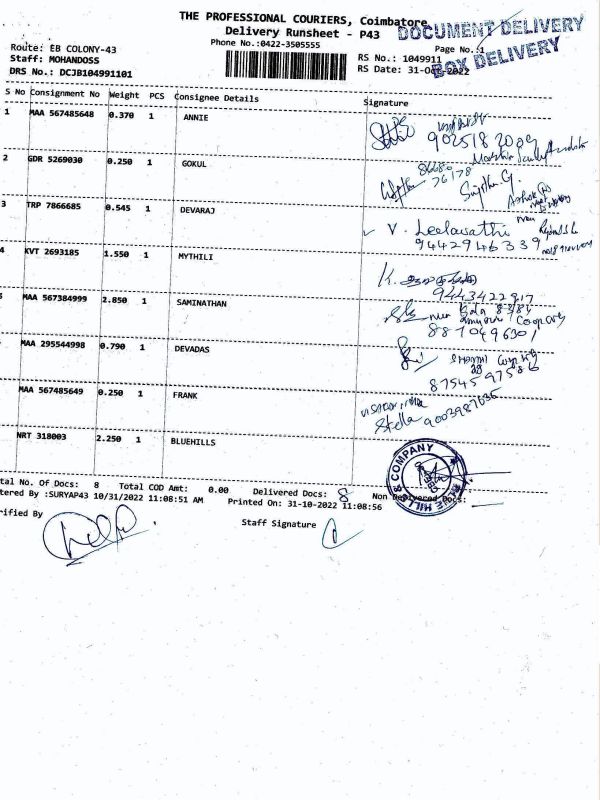 THE PROFESSIONAL COURIERS, Coimbatore
Delivery Runsheet - P43
DOCUMENT DELIVERY
BOX DELIVERY
Phone No.:0422-3505555
Page No.:1
Route: EB COLONY-43
Staff: MOHANDOSS
DRS No.: DCJB104991101
RS No.: 1049911
RS Date: 31-Oct-2022
S No Consignment No Weight PCS Consignee Details Signature
1 MAA 567485648 0.370 1 ANNIE
902518 2009
2 GDR 5269030 0.250 1 GOKUL
86680
76178
Sujitha G.
3 TRP 7866685 0.545 1 DEVARAJ
V. Leelavathi
9442946339
4 KVT 2693185 1.550 1 MYTHILI
K.
9443422917
5 MAA 567384999 2.850 1 SAMINATHAN
8870496301
MAA 295544998 0.790 1 DEVADAS
8754597586
MAA 567485649 0.250 1 FRANK
Stella 9003987635
NRT 318003 2.250 1 BLUEHILLS
COMPANY
BLUE HILL
tal No. Of Docs: 8 Total COD Amt: 0.00 Delivered Docs: 8 Non Delivered Docs:
tered By :SURYAP43 10/31/2022 11:08:51 AM Printed On: 31-10-2022 11:08:56
rified By
Staff Signature